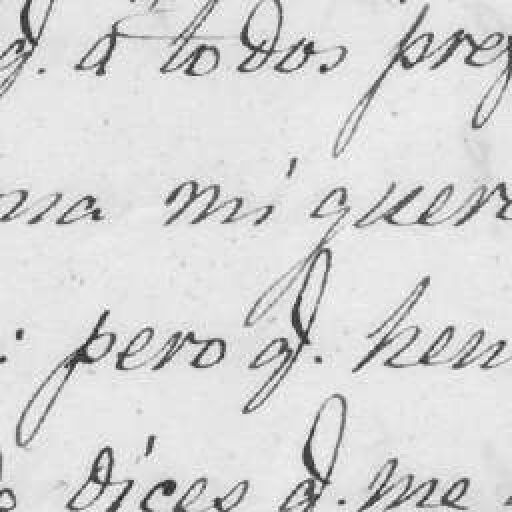 q.e á todos preg
na mi quer
: pero q.e hen
dices q.e me